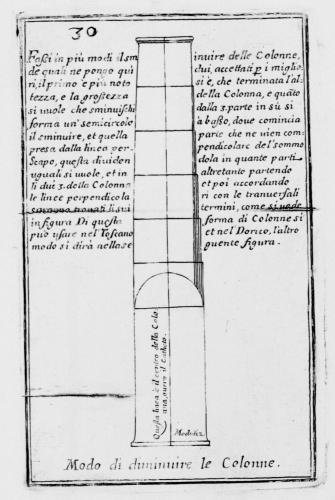 30
Fassi in più modi il sm inuire delle Colonne,
de quali ne pongo qui dui, accettati p i miglio
ri, il primo e più noto si è, che terminata l'al
tezza, e la grossezza della Colonna, e quãto
si uuole che sminuischi dalla 3. parte in sù si
forma un' semicircolo à basso, doue comincia
il sminuire, et quella parte che ne uien com
presa dalla linea per pendicolare del sommo
Scapo, questa diuiden dola in quante parti
uguali si uuole, et in altretante partendo
li dui 3. della Colonna et poi accordando
le linee perpendicola ri con le tranuersali
termini, come si uede
in figura Di questa forma di Colonne si
può usare nel Toscano et nel Dorico, l'altro
modo si dirà nella se guente figura.
Questa linea è il centro della Colo
nna, ouero il Catheto.
Moduli 2
Modo di diminuire le Colonne.